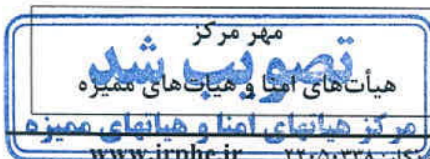 مهر مرکز
تصویب شد
هیأت‌های امنا و هیات‌های ممیزه
مرکز هیاتهای امنا و هیاتهای ممیزه
www.irphe.ir